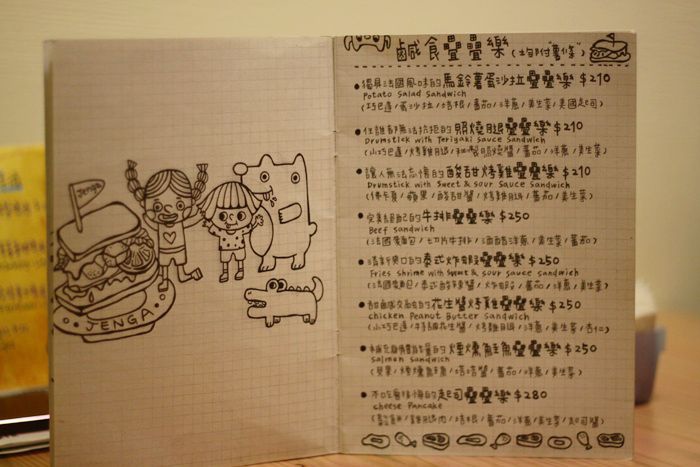 Jenga
JENGA
鹹食疊疊樂(均附"薯條")
獨具法國風味的馬鈴薯蛋沙拉疊疊樂 $210
Potato Salad Sandwich
(巧巴達/蛋沙拉/培根/番茄/洋蔥/美生菜/美國起司)
任誰都無法抗拒的照燒腿疊疊樂 $210
Drumstick with Teriyaki sauce Sandwich
(小巧巴達/烤雞腿/秘製照燒醬/番茄/洋蔥/美生菜)
讓人無法忘懷的酸甜烤雞疊疊樂 $210
Drumstick with Sweet & sour sauce Sandwich
(佛卡夏/蘋果/酸甜醬/烤雞腿/番茄/美生菜)
完美 自己的牛排疊疊樂 $250
Beef sandwich
(法國麵包/切片牛排/酒醋洋蔥/美生菜/番茄)
清新爽口的泰式炸蝦疊疊樂 $250
Fries shrimp with sweet & sour sauce sandwich
(法國麵包/泰式酸辣醬/炸蝦/番茄/洋蔥/美生菜)
的花生醬烤雞疊疊樂 $250
chicken Peanut Butter sandwich
(小巧巴達/花生醬/烤雞腿/洋蔥/美生菜/杏仁)
補充腦精體能量的煙燻鮭魚疊疊樂 $250
Salmon sandwich
(貝果/煙燻鮭魚/塔塔醬/番茄/洋蔥/美生菜)
不吃會後悔的起司疊疊樂 $280
cheese Pancake
(鬆餅/雞腿肉/培根/番茄/洋蔥/美生菜/起司醬)